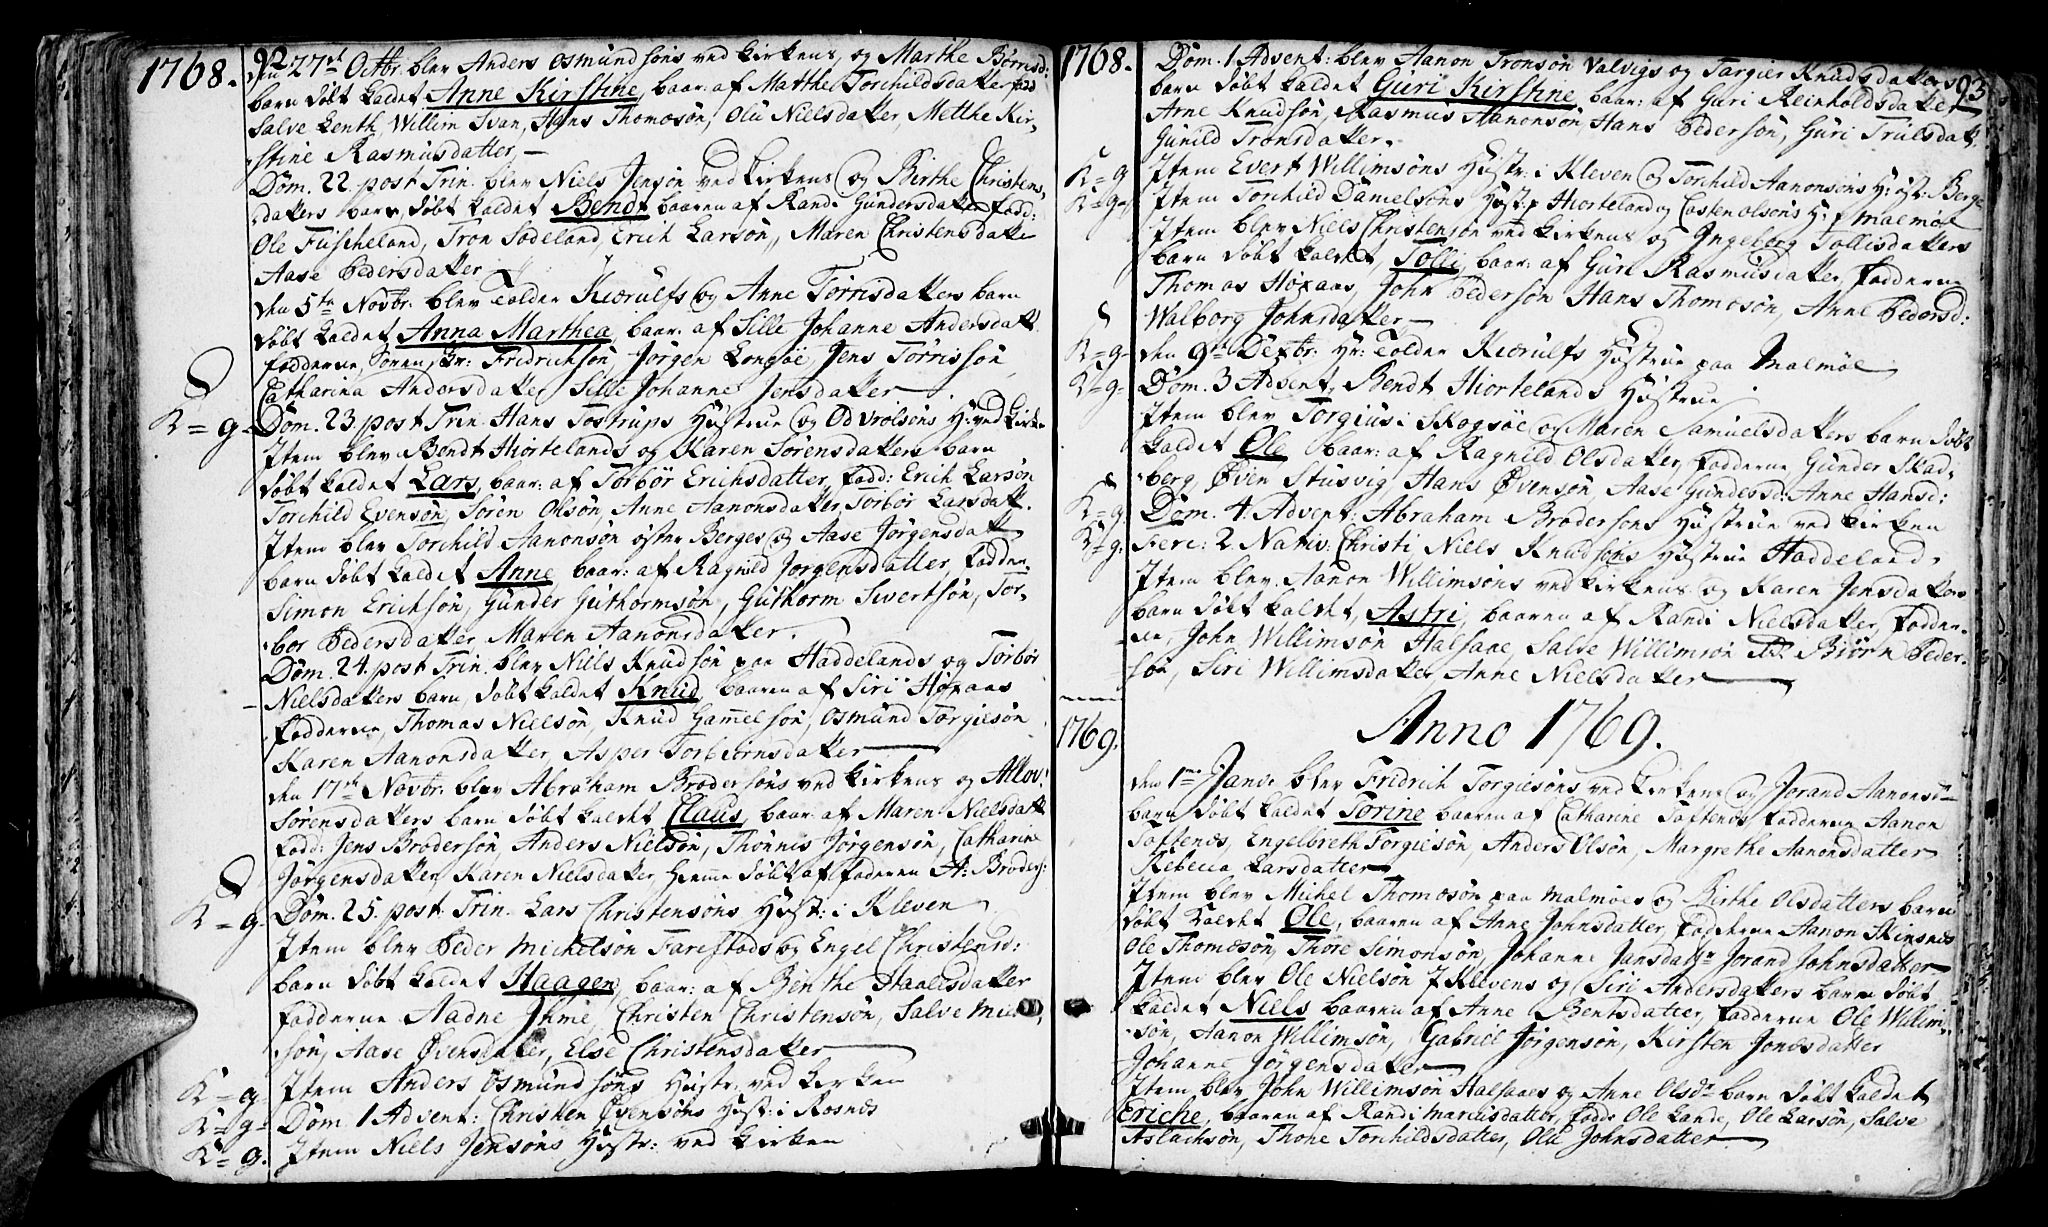 1768.
92
den 27de Octbr. blev Anders Osmundsöns ved Kirkens, og Marthe Börresd:
barn döbt kaldet Anne Kirstine, baar: af Marthe Torchildsdatter fadd
Salve Lenth, Willim Svan, Hans Thomesön, Olü Nielsdatter Metthe Kir-
stine Rasmusdatter.
Dom. 22. post Trin. blev Niels Jensön ved Kirkens og Birthe Christens-
datters barn, döbt kaldet Bendt baaren af Randi Gundersdatter fadd:
Ole Füscheland, Tron Södeland, Erich Larsön, Maren Christensdatter
Aase Pedersdatter
den 5te Novbr. blev Tolder Kierulfs og Anne Törrisdatters barn
döbt kaldet Anna Marthea, baar: af Sille Johanne Andersdatt.
fadderne, Sören, Hr: Fridrichsön Jörgen Longöe, Jens Törrissön
Catharina Andersdatter, Sille Johanne Jensdatter
K=g. Dom. 23. post Trin. Hans Tostrups Hustrue og Odvrolsöns H: ved Kirken
Item blev Bendt Hiortelands og Karen Sörensdatters barn
döbt kaldet Lars, baar: af Torbör Erichsdatter, fadd: Erich Larsön
Torchild Evensön, Sören Olsön, Anne Aanonsdatter, Torbor Larsdatt.
Item blev Torchild Aanonsön öster Berges og Aase Jörgensdatt
barn döbt kaldet Anne baar: af Ragnild Jörgensdatter, fadder
Simon Erichsön, Gunder Guthormsön, Guthorm Sivertsön, Tor-
bor Pedersdatter Maren Aanonsdatter.
Dom. 24. post Trin. blev Niels Knudsön paa Haddelands og Torbör
Nielsdatters barn, döbt kaldet Knud, baaren af Siri Höxaas
fadderne, Thomas Nielsön, Knud Gamelsön, Osmund Torgiesön
Karen Aanonsdatter, Asper Torbiörnsdatter
den 17de Novbr. blev Abraham Brodersöns ved Kirkens og Allov:
Sörensdatters barn döbt kaldet Claus, baar: af Maren Nielsdatt
fadd: Jens Brodersön, Anders Nielsön, Thönnes Jörgensön, Catharine
Jörgensdatter, Karen Nielsdatter, Hieme döbt af faderen A: Broders:
K=g. Dom. 25. post Trin. Lars Christensöns Hust: i Kleven
Item blev Peder Michelsön Farestads og Engel Christensd:
barn döbt kaldet Haagen, baar: af Birthe Haaresdatter
fadderne Aadne Ihme, Christen Christensön, Salve Mich
sön, Aase Övensdatter, Else Christensdatter
K=g. Item Anders Osmundsöns Hustr: ved Kirken
K=g. Dom. 1 Advent: Christen Övensöns Hust: i Rosnæs
K=g. Item Niels Jensöns Hustr: ved Kirken
1768.
93
Dom. 1 Advent: blev Aanon Tronsön Valvigs og Targier Knudsdatters
barn döbt kaldet Guri Kirstine, baar: af Guri Reinholdsdatter
Arne Knudsön, Rasmus Aanonsön, Hans Pedersön, Guri Trulsdatt.
Gunild Tronsdatter.
K=g. Item Evert Willimsöns Hustr: i Kleven og Torchild Aanonsöns H: öst. Berge
K=g. Item Torchild Danielsöns Hust. Hiorteland og Casten Olsöns H: Malmöe
Item blev Niels Christensön ved Kirkens og Ingeborg Tollisdatters
barn döbt kaldet, Tolli, baar: af Guri Rasmusdatter, fadderne
Thomas Höxaas, John Pedersön Hans Thomesön, Anne Pedersd:
Walborg Johnsdatter
K=g. den 9de Dexbr. Hr: Tolder Kierulfs Hustrue paa Malmöe
K=g. Dom. 3 Advent, Bendt Hiortelands Hustrue
Item blev Torgius i Skogsöe og Maren Samuelsdatters barn döbt
kaldet Ole baar: af Ragnild Olsdatter, fadderne Gunder Skad-
berg, Öven Stusvig, Hans Övensön, Aase Gundersd: Anne Hansd:
K=g. Dom. 4. Advent: Abraham Brodersöns Hustrue ved Kirken
K=g. Fere: 2 Nativ: Christi Niels Knudsöns Hustrue Haddeland
Item blev Aanon Willimsöns ved Kirkens og Karen Jensdatters
barn döbt kaldet, Astri, baaren af Randi Nielsdatter, fadder-
ne, John Willimsön Halsaae, Salve Willimsön Biörn Peder-
sön, Siri Willimsdatter Anne Nielsdatter
1769.
Anno 1769.
den 1me Janv. blev Fridrich Torgiesöns ved Kirkens og Jorand Aanonsdr
barn döbt kaldet Torine baaren af Catharine Toftenæs fadderne Aanon
Toftenæs, Engelbreth Torgiesön, Anders Olsön, Margrethe Aanonsdatter
Rebecca Larsdatter
Item blev Michel Thomesön paa Malmöes og Birthe Olsdatters barn
döbt kaldet Ole, baaren af Anne Johnsdatter, fadderne Aanon Skinsnæs
Ole Thomesön, Thore Simonsön, Johanne Jansdatr Jorand Johnsdatter
Item blev Ole Nielsön J Klevens og Siri Andersdatters barn döbt
kaldet Niels baaren af Anne Bentsdatter, fadderne Ole Willim-
sön, Aanon Willimsön, Gabriel Jörgensön, Kirsten Jonæsdatter
Johanne Jörgensdatter
Item blev John Willimsön Halsaaes og Anne Olsdr barn döbt kaldet
Eriche, baaren af Randi Marcusdatter, fadd: Ole Lande, Ole Larsön, Salve
Aslachsön, Thone Tornhildsdatter, Olü Johnsdatter